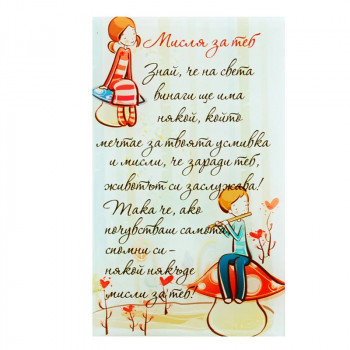 Мисля за теб
Знай, че на света
винаги ще има
някой, който
мечтае за твоята усмивка
и мисли, че заради теб,
животът си заслужава!
Така че, ако
почувстваш самота,
спомни си –
някой някъде
мисли за теб!